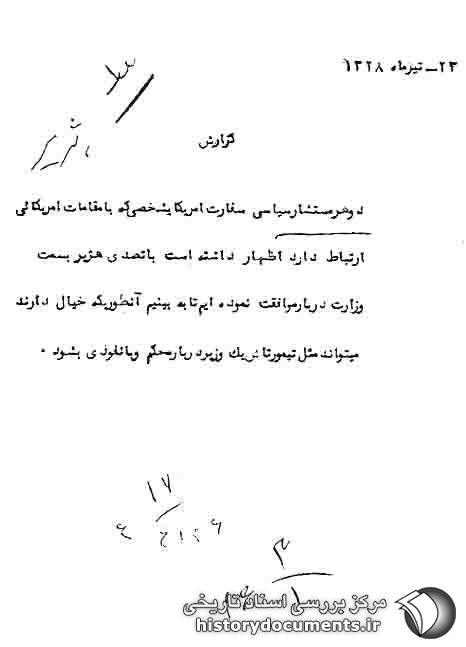 ۲۳ــ تیرماه ۱۳۲۸
گزارش
دوهر مستشار سیاسی سفارت امریکا بشخصی که با مقامات امریکائی
ارتباط دارد اظهار داشته است با تصدی هژیر بسمت
وزارت دربار موافقت نموده ایم تا به بینیم آنطوریکه خیال دارند
میتواند مثل تیمورتاش یک وزیر دربار محکم و با نفوذی بشود .
۱۷
۳
۱
مرکز بررسی اسناد تاریخی
historydocuments.ir